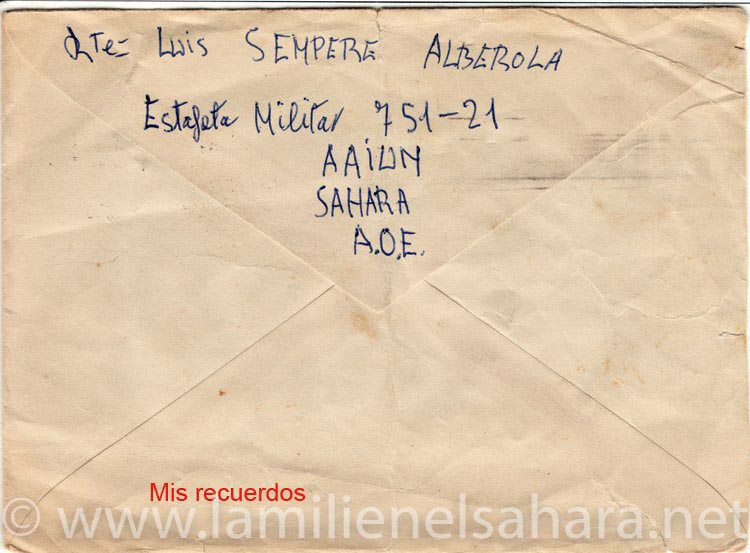 Rte= Luis SEMPERE ALBEROLA
Estafeta Militar 751-21
AAIUN
SAHARA
A.O.E.
Mis recuerdos
© www.lamilienelsahara.net